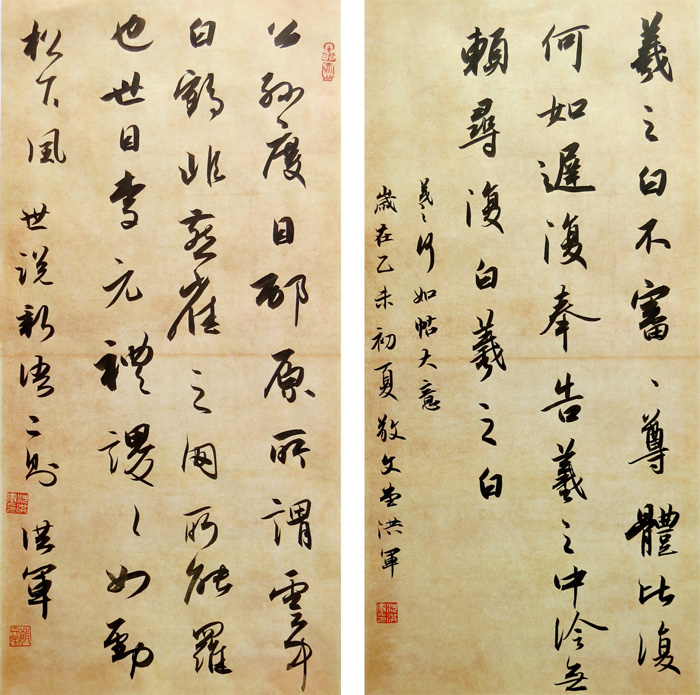 羲之白不審、尊體比復
何如遲復奉告羲之中冷無
賴尋復白羲之白
羲之何如帖大意
歲在乙未初夏敬文堂洪軍
公孫度目邴原所謂雲中
白鶴非燕雀之网所能羅
也世目李元禮謖々如勁
松下風 世说新语二则 洪軍